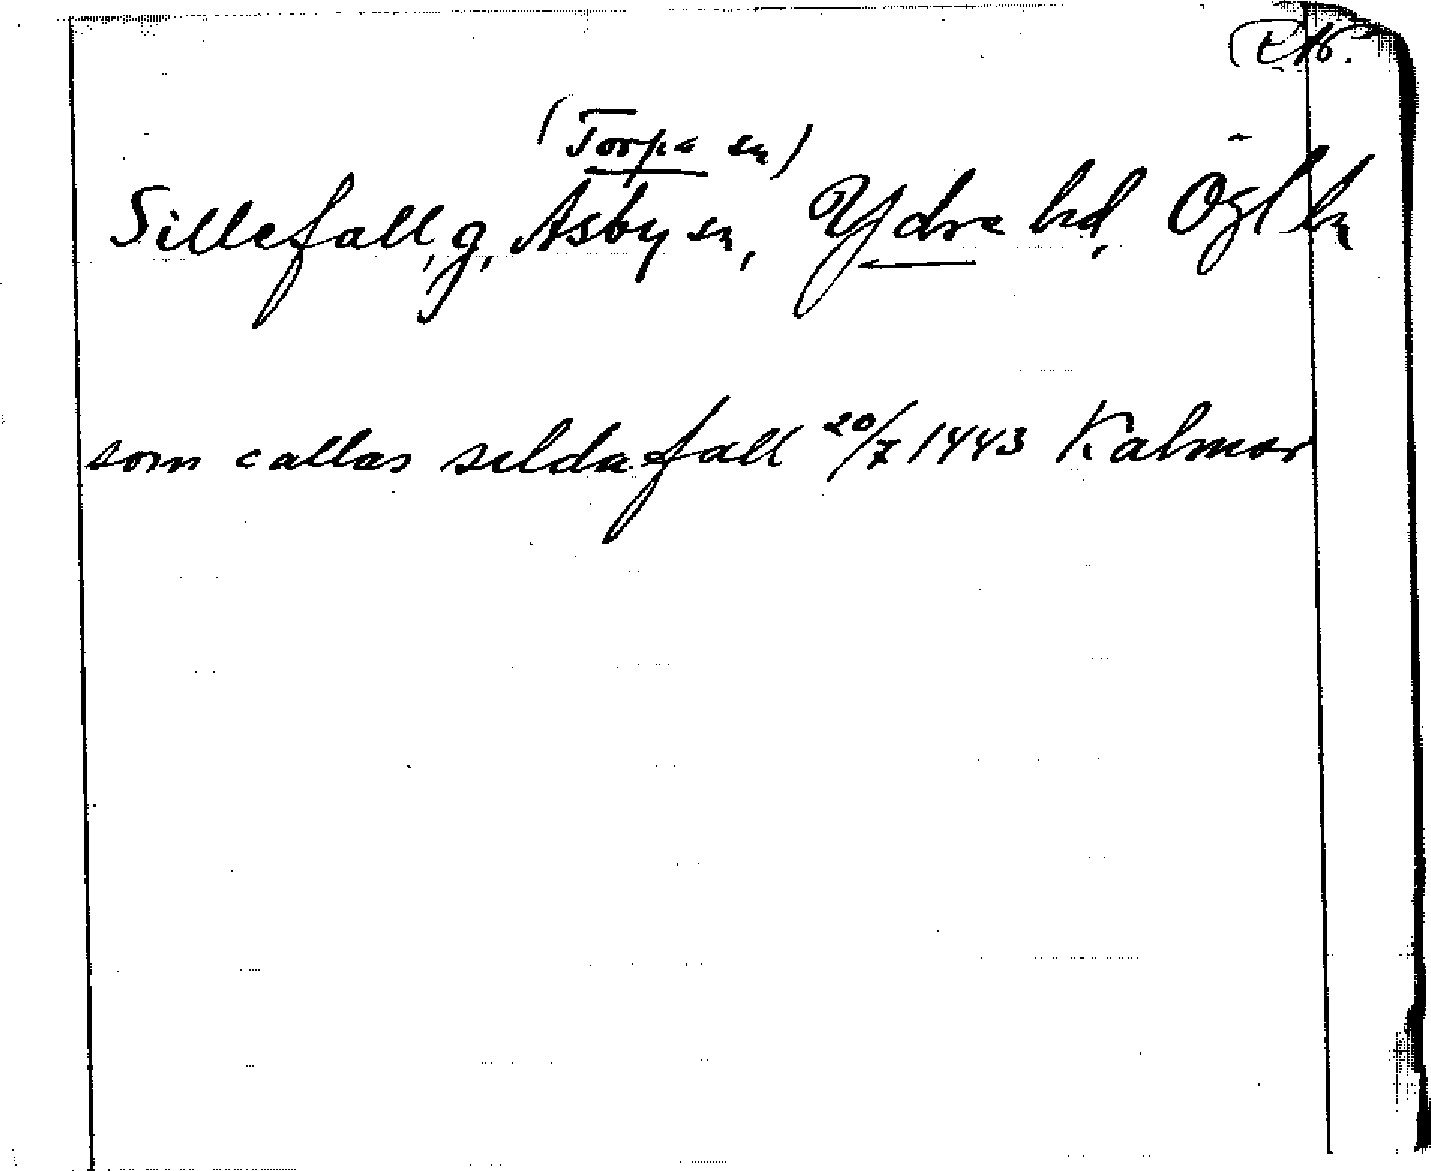 (Torpa sn)
Sillefall, g, Asby sn, Ydre hd, Ögl ln
som callas seldafall 20/7 1443 Kalmar